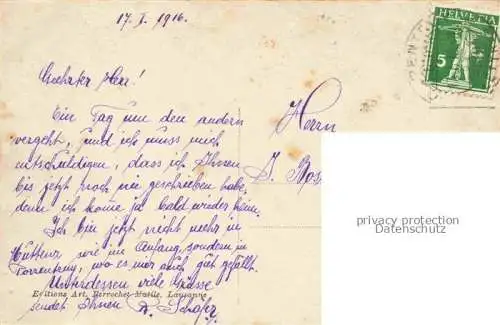 17. I. 1916.
HELVETIA
5
Geehrter Herr!
Ein Tag um den andern
vergeht, und ich muss mich
entschuldigen, dass ich Ihnen
bis jetzt noch nie geschrieben habe,
denn ich kome ja bald wieder heim.
Ich bin jetzt nicht mehr in
Muttenz wie im Anfang, sondern in
Porrentruy, wo es mir auch gut gefällt.
Unterdessen viele Grüsse
sendet Ihnen R. Schäfer
Herrn
J. Ros
privacy protection
Datenschutz
Editions Art. Perrochet-Matile, Lausanne